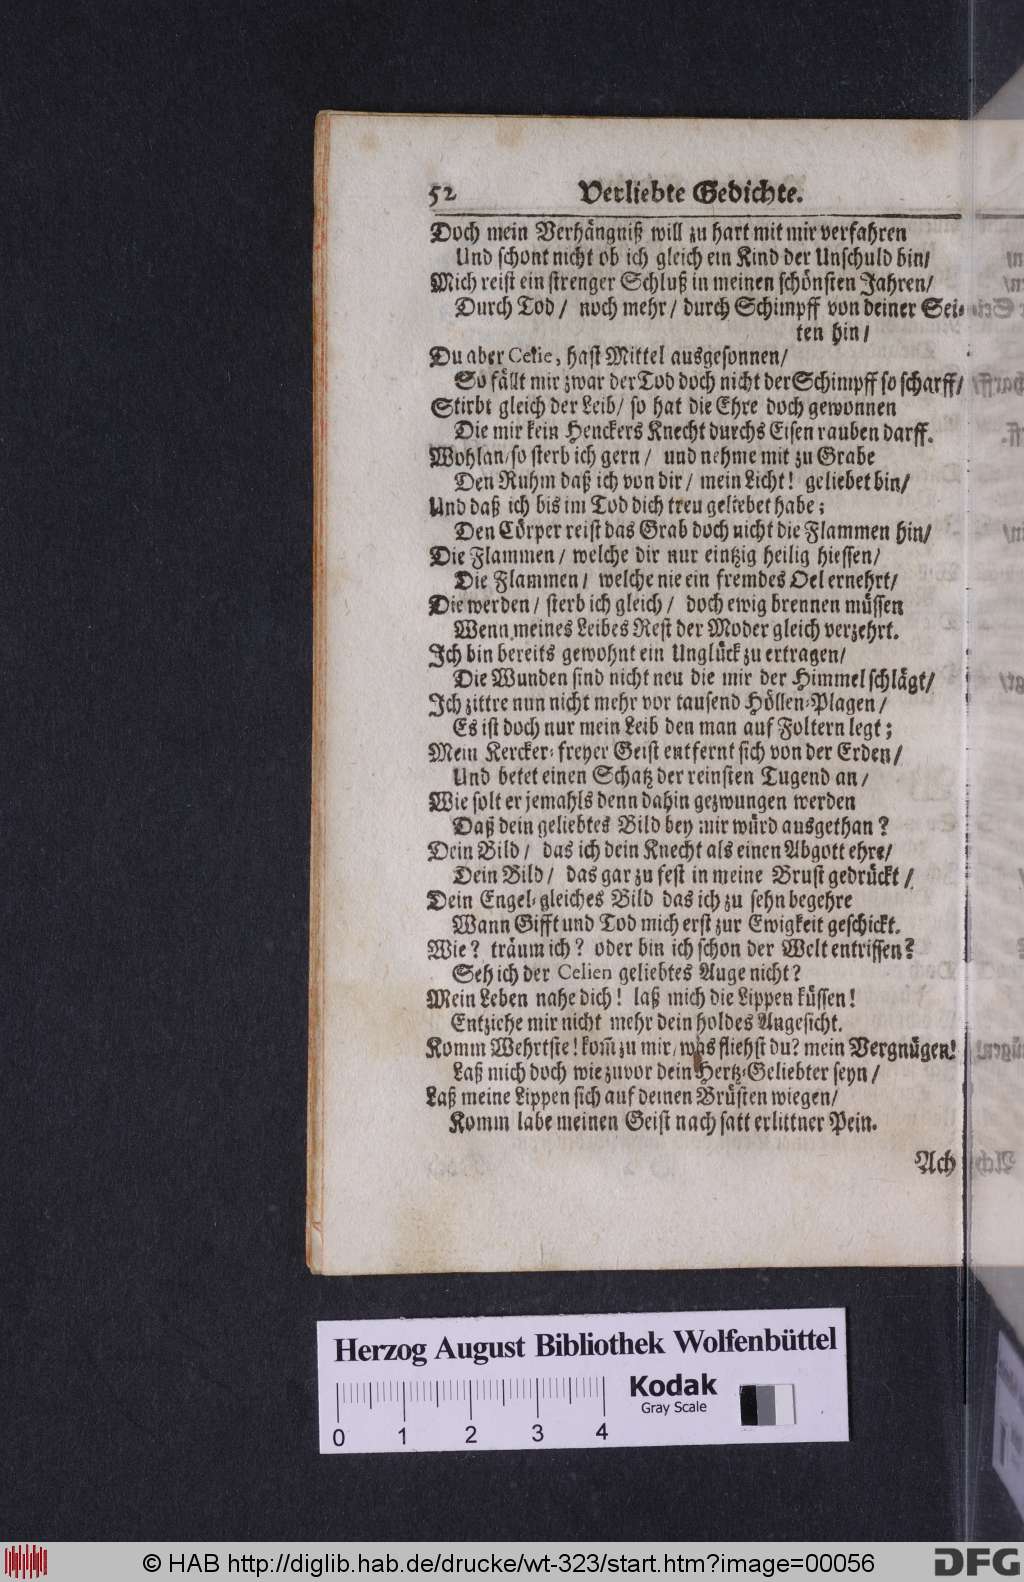 52 Verliebte Gedichte.
Doch mein Verhängniß will zu hart mit mir verfahren
Und schont nicht ob ich gleich ein Kind der Unschuld bin/
Mich reist ein strenger Schluß in meinen schönsten Jahren/
Durch Tod / noch mehr / durch Schimpff von deiner Sei-
ten hin /
Du aber Celie, hast Mittel ausgesonnen/
So fällt mir zwar der Tod doch nicht der Schimpff so scharff/
Stirbt gleich der Leib/ so hat die Ehre doch gewonnen
Die mir kein Henckers Knecht durchs Eisen rauben darff.
Wohlan/ so sterb ich gern / und nehme mit zu Grabe
Den Ruhm daß ich von dir / mein Licht! geliebet bin/
Und daß ich bis im Tod dich treu geliebet habe;
Den Cörper reist das Grab doch nicht die Flammen hin/
Die Flammen / welche dir nur eintzig heilig hiessen/
Die Flammen / welche nie ein fremdes Oel ernehrt/
Die werden / sterb ich gleich / doch ewig brennen müssen
Wenn meines Leibes Rest der Moder gleich verzehrt.
Ich bin bereits gewohnt ein Unglück zu ertragen/
Die Wunden sind nicht neu die mir der Himmel schlägt/
Ich zittre nun nicht mehr vor tausend Höllen-Plagen /
Es ist doch nur mein Leib den man auf Foltern legt;
Mein Kercker-freyer Geist entfernt sich von der Erden/
Und betet einen Schatz der reinsten Tugend an /
Wie solt er jemahls denn dahin gezwungen werden
Daß dein geliebtes Bild bey mir würd ausgethan?
Dein Bild / das ich dein Knecht als einen Abgott ehre/
Dein Bild / das gar zu fest in meine Brust gedrückt /
Dein Engel-gleiches Bild das ich zu sehn begehre
Wann Gifft und Tod mich erst zur Ewigkeit geschickt.
Wie? träum ich? oder bin ich schon der Welt entrissen?
Seh ich der Celien geliebtes Auge nicht?
Mein Leben nahe dich! laß mich die Lippen küssen!
Entziehe mir nicht mehr dein holdes Angesicht.
Komm Wehrtste! kom̅ zu mir/ was fliehst du? mein Vergnügen!
Laß mich doch wie zuvor dein Hertz-Geliebter seyn /
Laß meine Lippen sich auf deinen Brüsten wiegen/
Komm labe meinen Geist nach satt erlittner Pein.
Ach
Herzog August Bibliothek Wolfenbüttel
Kodak
Gray Scale
0 1 2 3 4
© HAB http://diglib.hab.de/drucke/wt-323/start.htm?image=00056
DFG